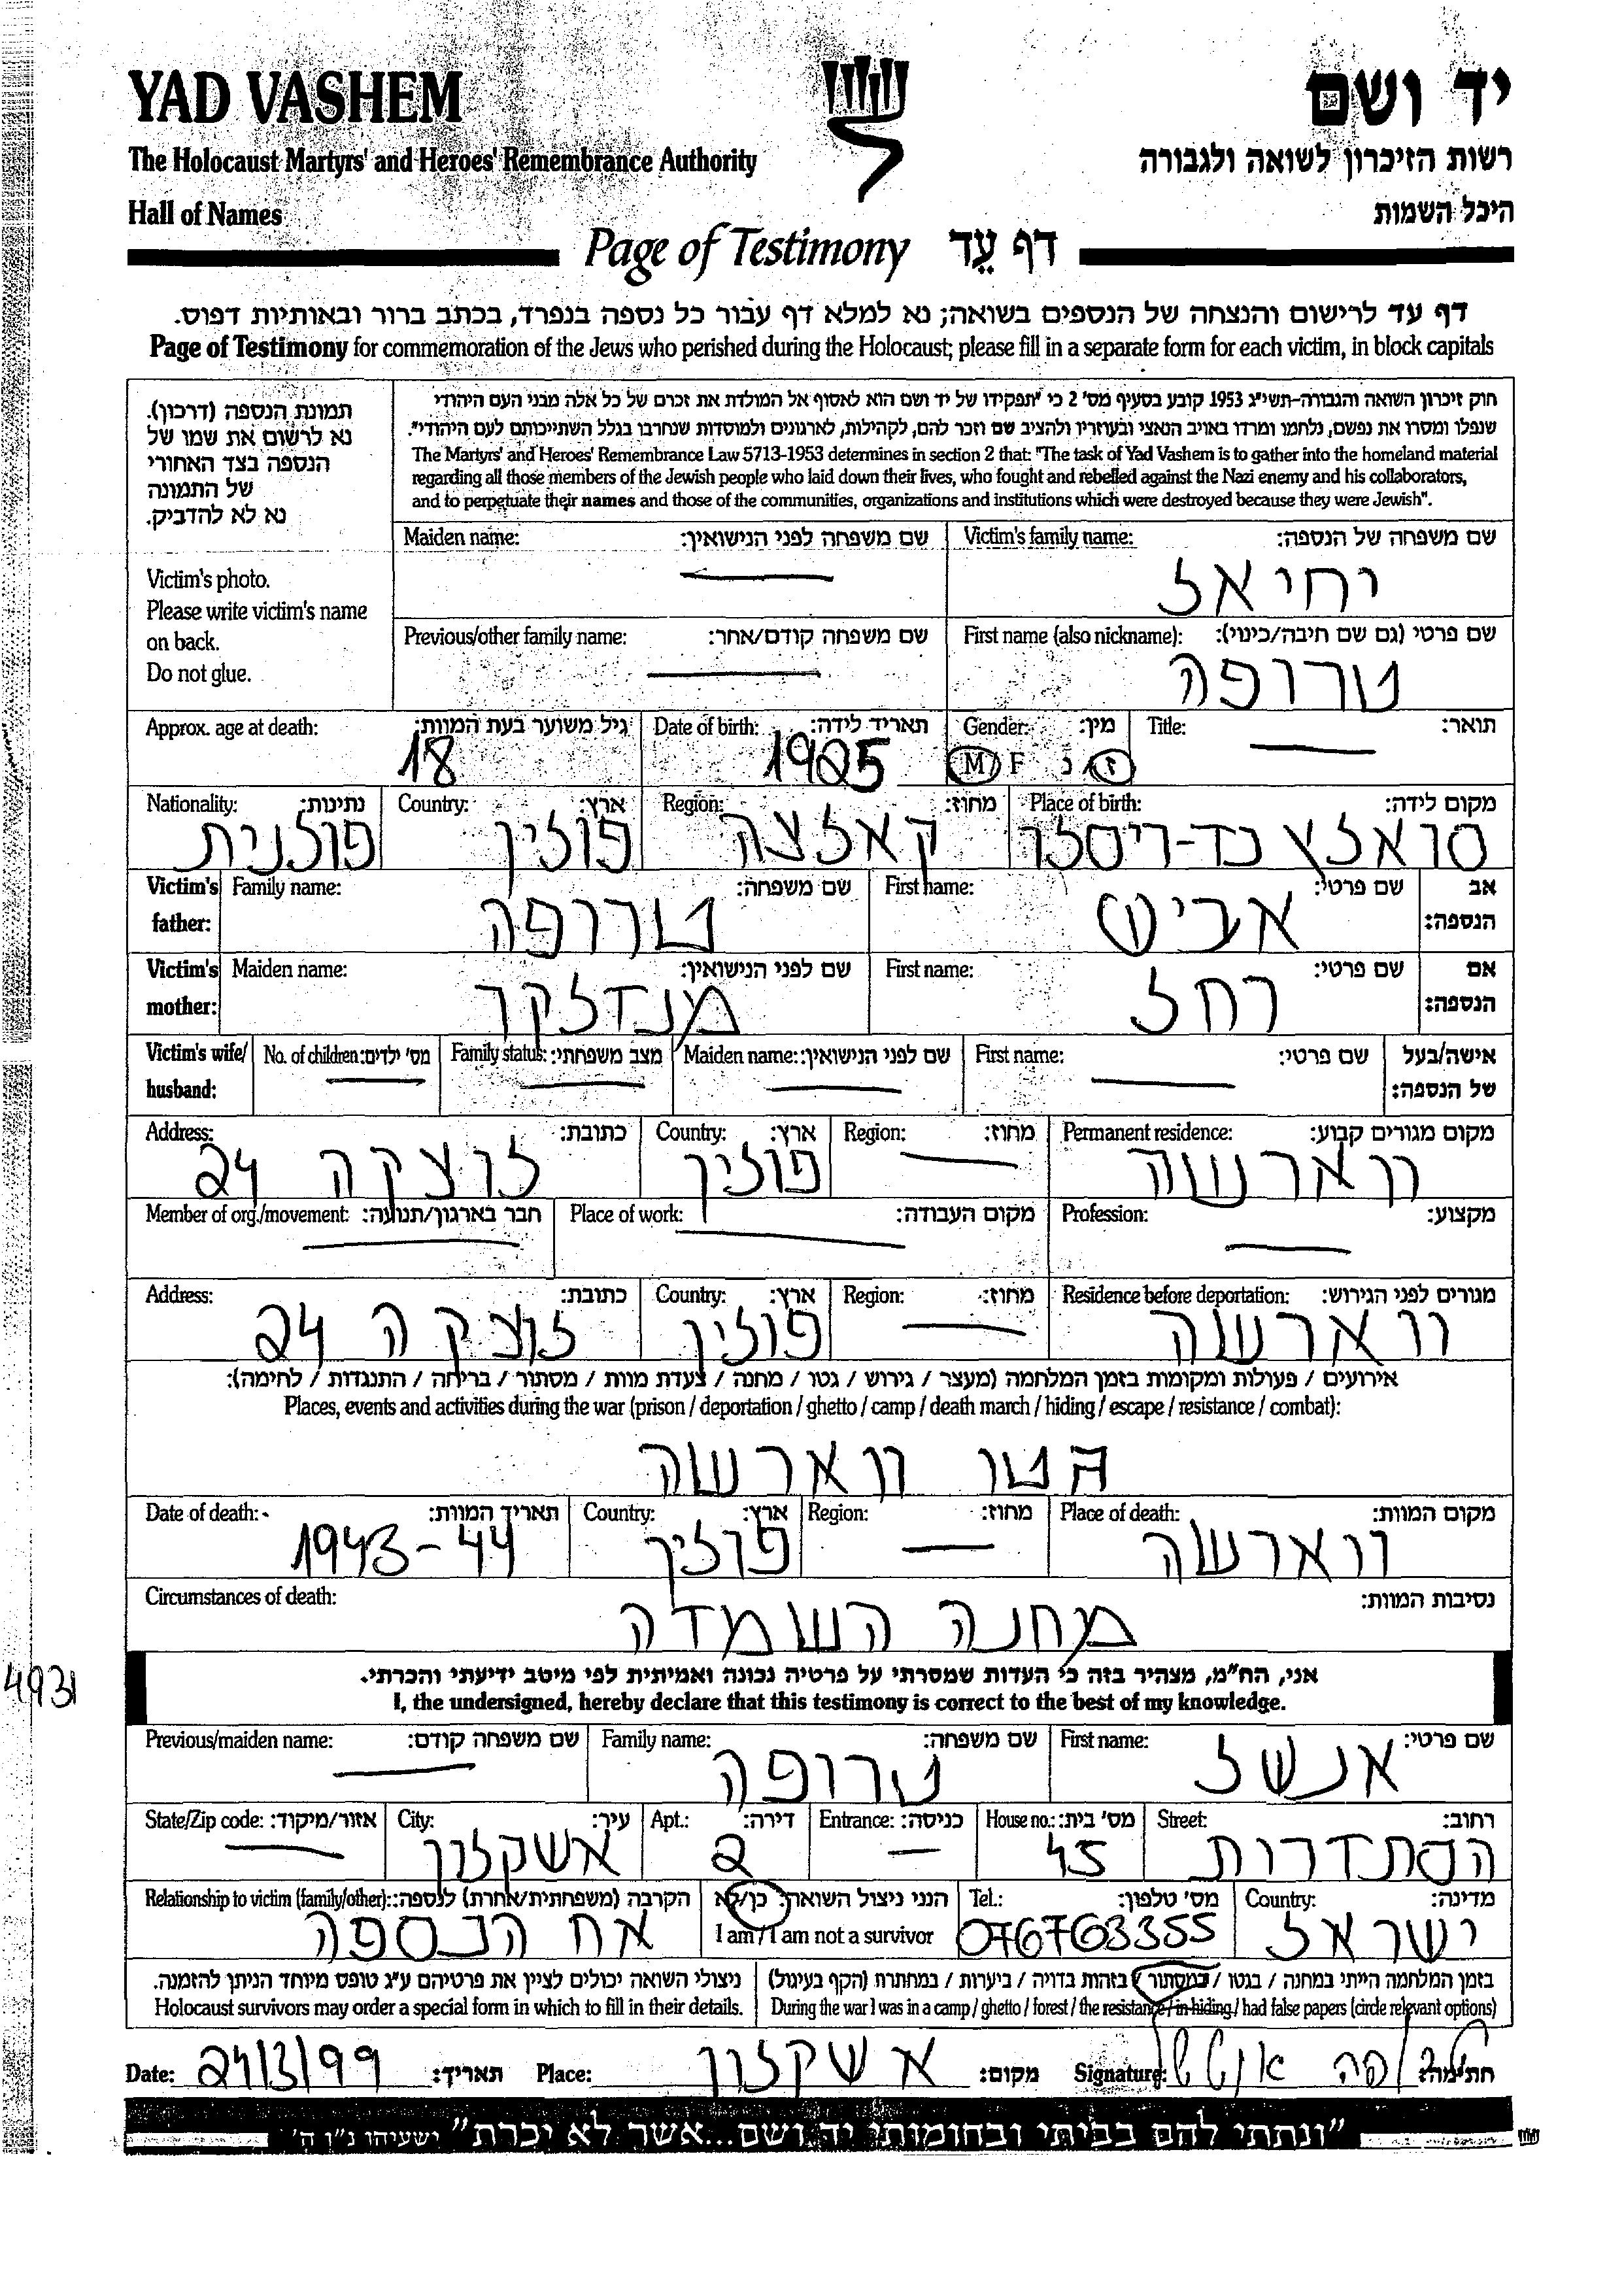 YAD VASHEM
יד ושם
The Holocaust Martyrs' and Heroes' Remembrance Authority
רשות הזיכרון לשואה ולגבורה
Hall of Names
היכל השמות
Page of Testimony דף עֵד
דף עד לרישום והנצחה של הנספים בשואה; נא למלא דף עבור כל נספה בנפרד, בכתב ברור ובאותיות דפוס.
Page of Testimony for commemoration of the Jews who perished during the Holocaust; please fill in a separate form for each victim, in block capitals
תמונת הנספה (דרכון).
נא לרשום את שמו של
הנספה בצד האחורי
של התמונה
נא לא להדביק.
Victim's photo.
Please write victim's name
on back.
Do not glue.
חוק זיכרון השואה והגבורה-תשי"ג 1953 קובע בסעיף מס' 2 כי "תפקידו של יד ושם הוא לאסוף אל המולדת את זכרם של כל אלה מבני העם היהודי
שנפלו ומסרו את נפשם, נלחמו ומרדו באויב הנאצי ובעוזריו ולהציב שם וזכר להם, לקהילות, לארגונים ולמוסדות שנחרבו בגלל השתייכותם לעם היהודי".
The Martyrs' and Heroes' Remembrance Law 5713-1953 determines in section 2 that: "The task of Yad Vashem is to gather into the homeland material
regarding all those members of the Jewish people who laid down their lives, who fought and rebelled against the Nazi enemy and his collaborators,
and to perpetuate their names and those of the communities, organizations and institutions which were destroyed because they were Jewish".
Maiden name: שם משפחה לפני הנישואין: Victim's family name: שם משפחה של הנספה:
יחיאל
Previous/other family name: שם משפחה קודם/אחר: First name (also nickname): שם פרטי (גם שם חיבה/כינוי):
טרופה
Approx. age at death: גיל משוער בעת המוות: Date of birth: תאריד לידה: Gender: מין: Title: תואר:
18 1925 M F נ ז
Nationality: נתינות: Country: ארץ: Region: מחוז: Place of birth: מקום לידה:
פולנית פולין קאלצה סואלץ נד-ויסלו
Victim's father: Family name: שם משפחה: First name: שם פרטי: אב הנספה:
טרופה אביש
Victim's mother: Maiden name: שם לפני הנישואין: First name: שם פרטי: אם הנספה:
מנדלקר רחל
Victim's wife/husband: No. of children: מס' ילדים: Family status: מצב משפחתי: Maiden name: שם לפני הנישואין: First name: שם פרטי: אישה/בעל של הנספה:
Address: כתובת: Country: ארץ: Region: מחוז: Permanent residence: מקום מגורים קבוע:
לוצקה 24 פולין ווארשה
Member of org./movement: חבר בארגון/תנועה: Place of work: מקום העבודה: Profession: מקצוע:
Address: כתובת: Country: ארץ: Region: מחוז: Residence before deportation: מגורים לפני הגירוש:
לוצקה 24 פולין ווארשה
אירועים / פעולות ומקומות בזמן המלחמה (מעצר / גירוש / גטו / מחנה / צעדת מוות / מסתור / בריחה / התנגדות / לחימה):
Places, events and activities during the war (prison / deportation / ghetto / camp / death march / hiding / escape / resistance / combat):
גטו ווארשה
Date of death: תאריד המוות: Country: ארץ: Region: מחוז: Place of death: מקום המוות:
1943-44 פולין ווארשה
Circumstances of death: נסיבות המוות:
מחנה השמדה
4931
אני, הח"מ, מצהיר בזה כי העדות שמסרתי על פרטיה נכונה ואמיתית לפי מיטב ידיעתי והכרתי.
I, the undersigned, hereby declare that this testimony is correct to the best of my knowledge.
Previous/maiden name: שם משפחה קודם: Family name: שם משפחה: First name: שם פרטי:
טרופה אנשל
State/Zip code: אזור/מיקוד: City: עיר: Apt.: דירה: Entrance: כניסה: House no.: מס' בית: Street: רחוב:
אשקלון 2 45 הסתדרות
Relationship to victim (family/other): הקרבה (משפחתית/אחרת) לנספה: הנני ניצול השואה: כן/לא Tel.: מס' טלפון: Country: מדינה:
אח הנספה I am / I am not a survivor 076763355 ישראל
ניצולי השואה יכולים לציין את פרטיהם ע"ג טופס מיוחד הניתן להזמנה. בזמן המלחמה הייתי במחנה / בגטו / במסתור / בזהות בדויה / ביערות / במחתרת (הקף בעיגול)
Holocaust survivors may order a special form in which to fill in their details. During the war I was in a camp / ghetto / forest / the resistance / in hiding / had false papers (circle relevant options)
Date: 24/3/99 תאריד: Place: אשקלון מקום: Signature: טרופה אנשל חתימה:
"ונתתי להם בביתי ובחומותי יד ושם...אשר לא יכרת" ישעיהו נ"ו ה'